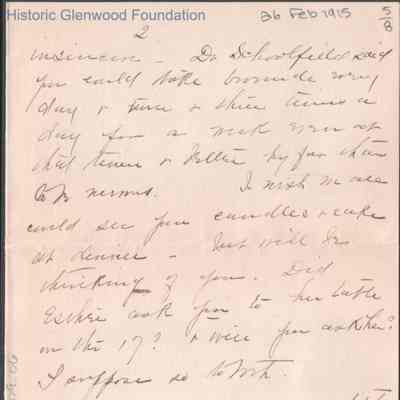 Historic Glenwood Foundation
26 Feb 1915
5/8
2
Dr Schoolfield said
you could take bromide every
day & twice & three times a
day for a week even at
that time & better by far than
to be nervous. I wish we all
could see you candles & cake
at dinner - but will be
thinking of you. Did
Esther ask you to her table
on the 17? & will you ask her?
I suppose so